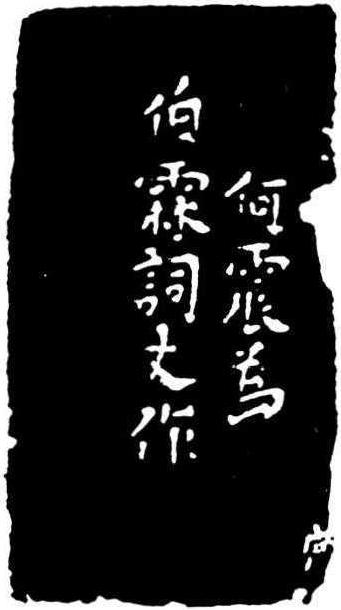 何震為
伯霖詞丈作